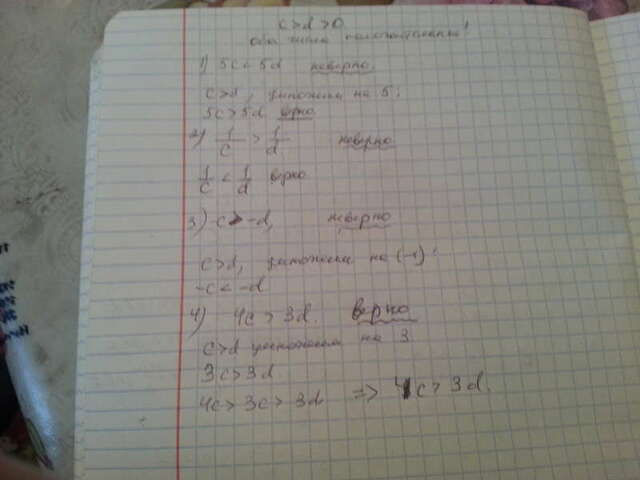 c > d > 0
оба числа положительны!
1) 5c < 5d неверно
c > d, умножим на 5:
5c > 5d верно
2) 1/c > 1/d неверно
1/c < 1/d верно
3) -c > -d, неверно
c > d, умножим на (-1):
-c < -d
4) 4c > 3d. верно
c > d умножим на 3
3c > 3d
4c > 3c > 3d => 4c > 3d.